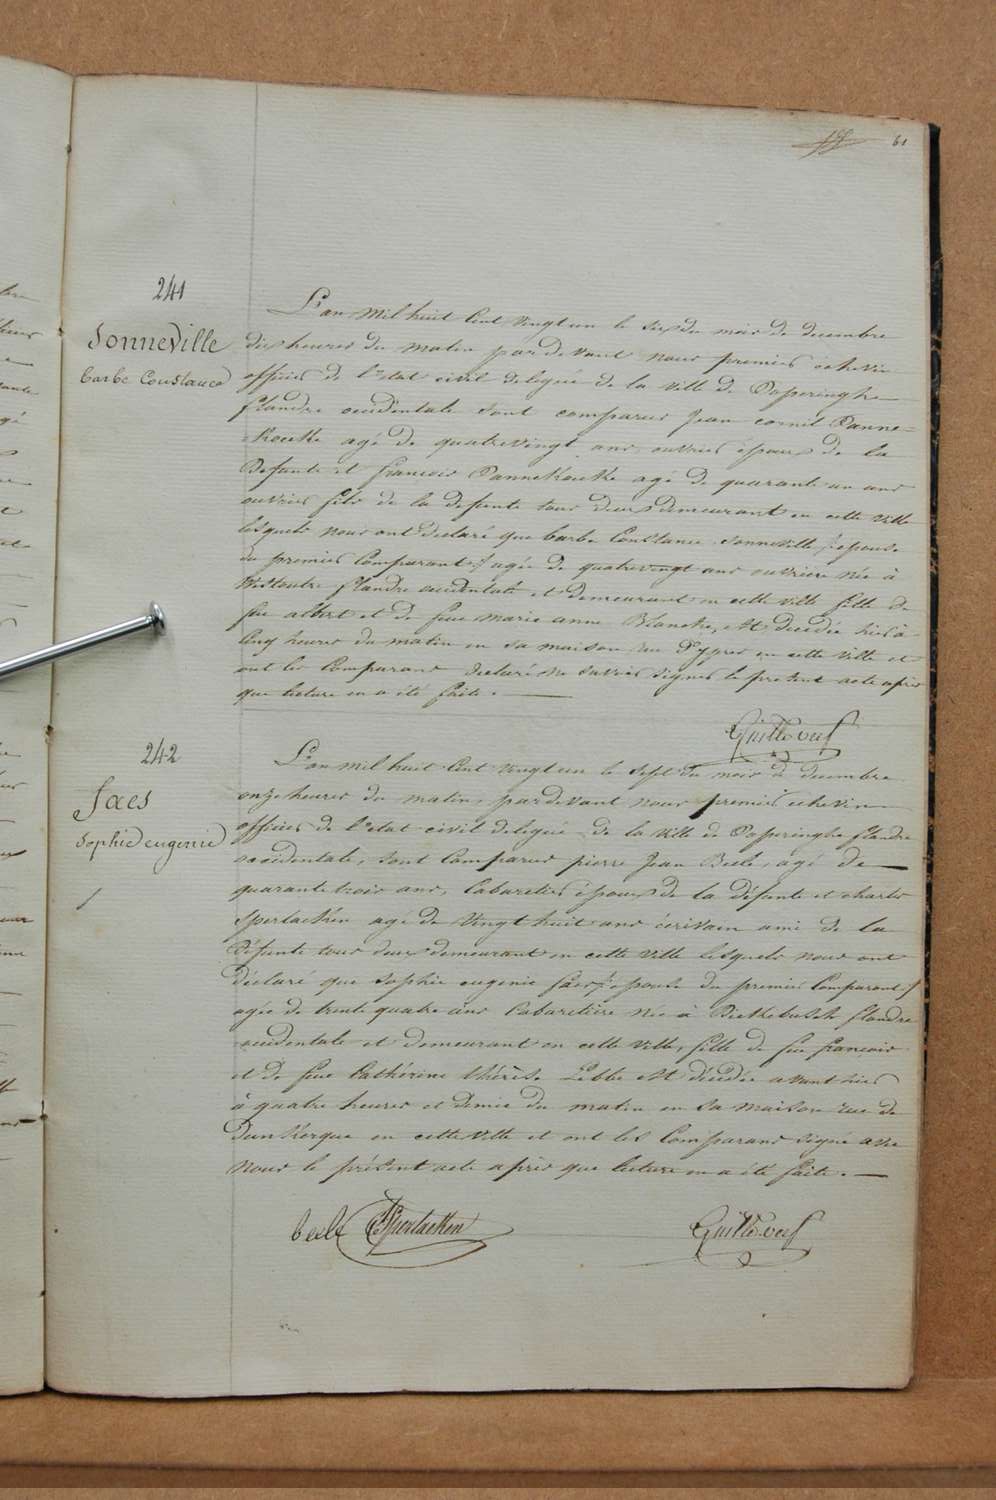 61
241
Sonneville
barbe Constance
L'an mil huit Cent Vingt un le six du mois de decembre
dix heures du matin par devant nous premier échevin
officier de l'etat civil delegué de la ville de Poperinghe
flandre occidentale sont comparus Jean cornil Panne=
-Koucke agé de quatrevingt ans, ouvrier époux de la
Defunte et francois Pannekoucke agé de quarante un ans
ouvrier fils de la defunte tous deux demeurant en cette ville
lesquels nous ont déclaré que barbe Constance Sonneville, épouse
du premier Comparant, agée de quatrevingt ans ouvriere née à
Westoutre flandre occidentale et demeurant en cette ville fille de
feu albert et de feue marie anne Blancke, est decedée hier à
Cinq heures du matin en sa maison rue D'ypres en cette ville et
ont les Comparans déclaré ne savoir signer le présent acte après
que lecture en a été faite.
242
Saes
Sophie eugenie
L'an mil huit Cent Vingt un le Sept du mois de decembre
onze heures du matin, pardevant nous premier echevin
officier de l'etat civil delegué de la ville de Poperinghe flandre
occidentale, sont Comparus pierre Jean Beele, agé de
quarante trois ans, Cabaretier époux de la défunte et charles
Sperlacken agé de Vingt huit ans écrivain ami de la
Défunte tous deux demeurant en cette ville lesquels nous ont
déclaré que Sophie eugenie Saes, épouse du premier Comparant,
agée de trente quatre ans Cabaretière née à Dickebusch flandre
occidentale et demeurant en cette ville, fille de feu francois
et de feue Cathérine thérèse Lebbe est décédée avant hier
à quatre heures et demie du matin en sa maison rue de
Dunkerque en cette ville et ont les Comparans signé avec
Nous le présent acte après que lecture en a été faite.
beele Sperlacken